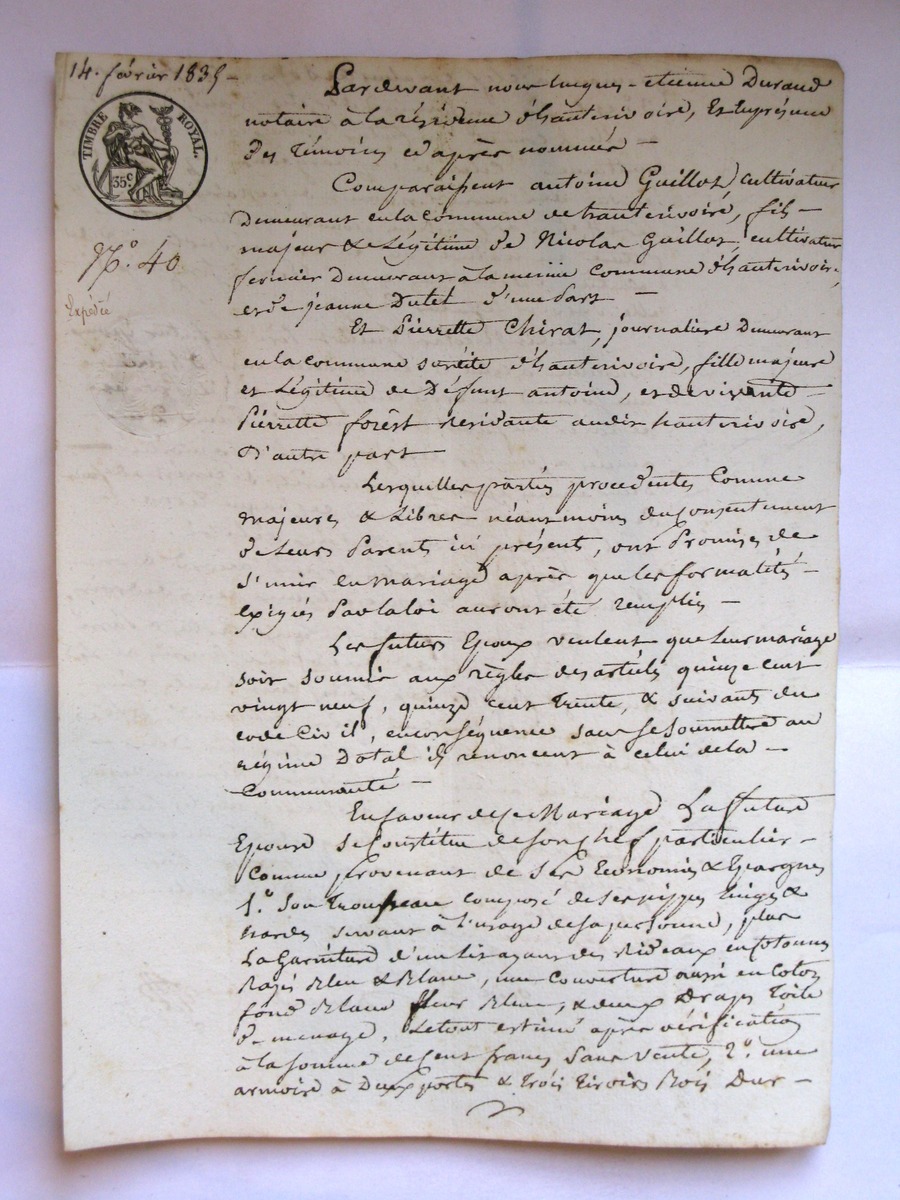 14. février 1835 –
TIMBRE ROYAL.
35 c.
N.° 40
Expédié
Pardevant nous hugues-etienne Durand
notaire à la résidence d'hauterivoire, Et En présence
Des Témoins cy après nommés –
Comparaissent antoine Guillot, cultivateur
Demeurant en la commune de hauterivoire, fils –
majeur & Légitime de Nicolas Guillot, cultivateur
fermier Demeurant à la même commune d'hauterivoire,
et de jeanne Dutel d'une Part –
Et Pierrette Chirat, journalière Demeurant
en la commune susdite d'hauterivoire, fille majeure
et Légitime de Défunt antoine, et de vivante
Pierrette forest résidante audit hauterivoire,
D'autre part –
Lesquelles parties procédentes Comme
majeures & Libres néanmoins du consentement
de Leurs Parents ici présents, ont Promises de
s'unir en mariage après que les formalités –
exigées Par la loi auront été remplies –
Les futurs Epoux veulent que Leur mariage
soit soumis aux règles des articles quinze cent
vingt neuf, quinze cent Trente, & suivants du
code Civil, en conséquence sans se soumettre au
régime Dotal ils renoncent à celui de la –
Communauté –
En faveur de ce Mariage La future
Epouse se Constitue de son chef particulier –
Comme provenant de ses Economies & Epargnes
1.° Son Trousseau composé de ses nippes linges &
hardes servant à l'usage de sa personne, plus
La Garniture d'un Lit ayant des Rideaux en Cotonne
Rayés Bleu & Blanc, une Couverture aussi en Coton
fond Blanc fleur Bleue, & deux Draps Toile
de menage, Le tout estimé après vérification
à la somme de Cent francs sans vente, 2.° une
armoire à Deux portes & Trois Tiroirs Bois Dur –